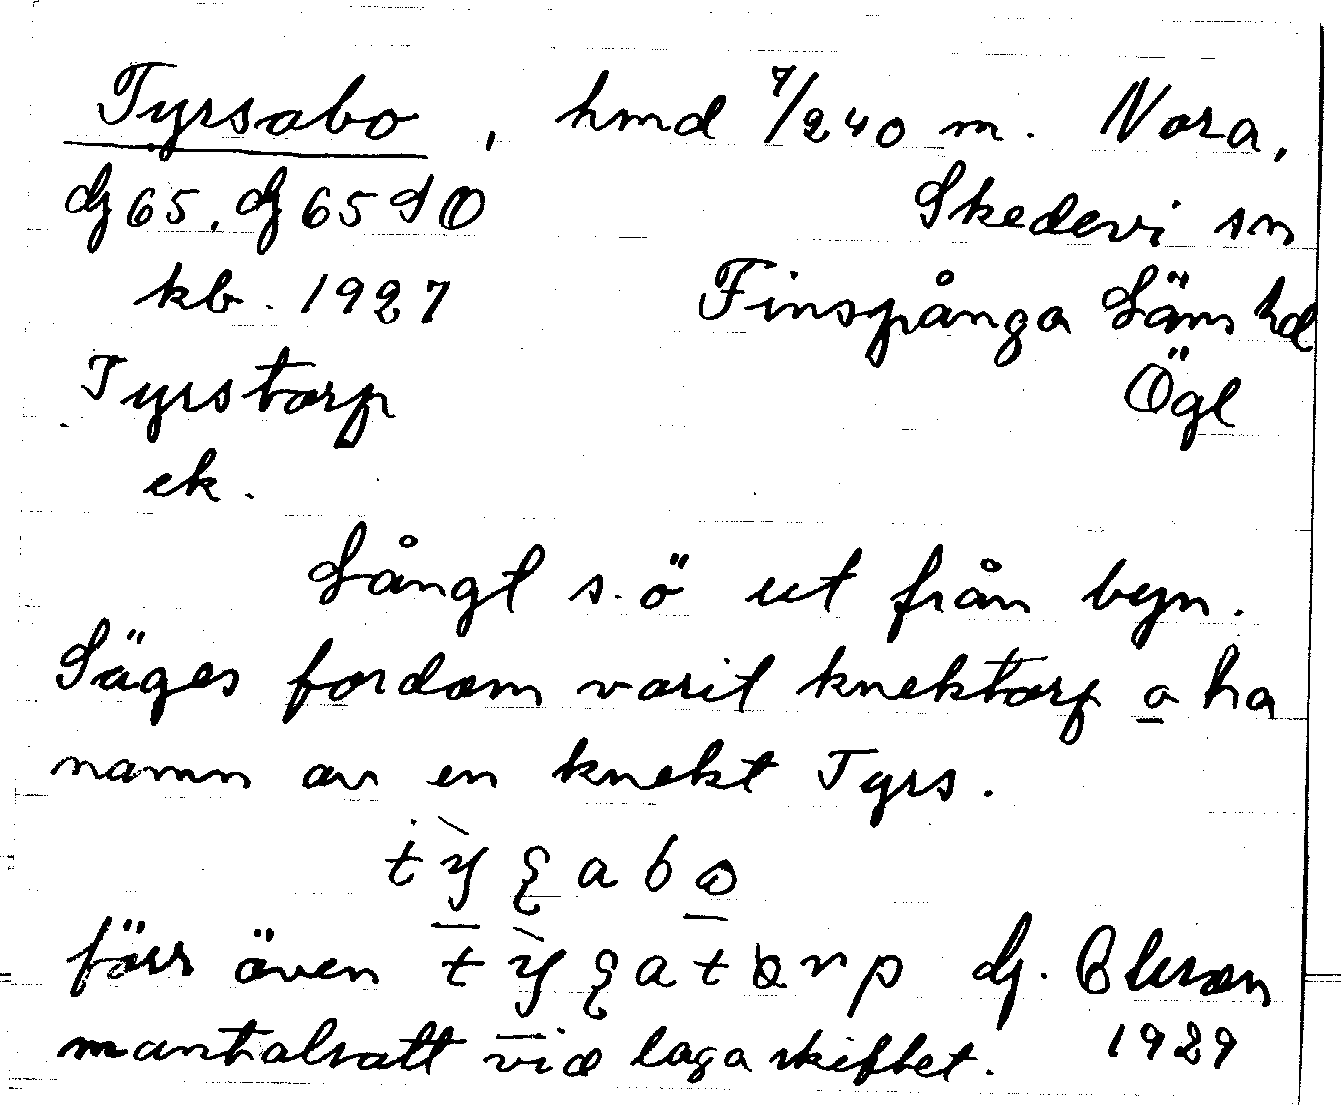 Tyrsabo, hmd 7/240 m. Nora,
dj 65. dj 65 SO Skedevi sn
kb. 1927 Finspånga Läns hd
Tyrstorp Ögl
ek.
Långt s.ö ut från byn.
Säges fordom varit knektorp o ha
namn av en knekt Tyrs.
förr även dj.
mantalsatt vid laga skiftet. 1929